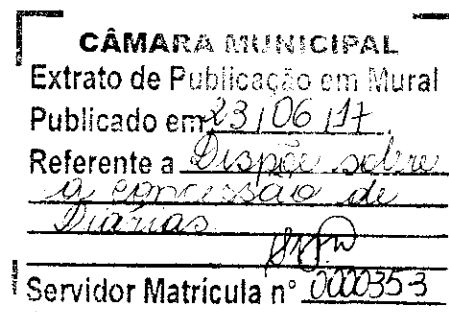 CÂMARA MUNICIPAL
Extrato de Publicação em Mural
Publicado em 23/06/17
Referente a Dispõe sobre
a concessão de
Diárias
Servidor Matrícula n° 0000353